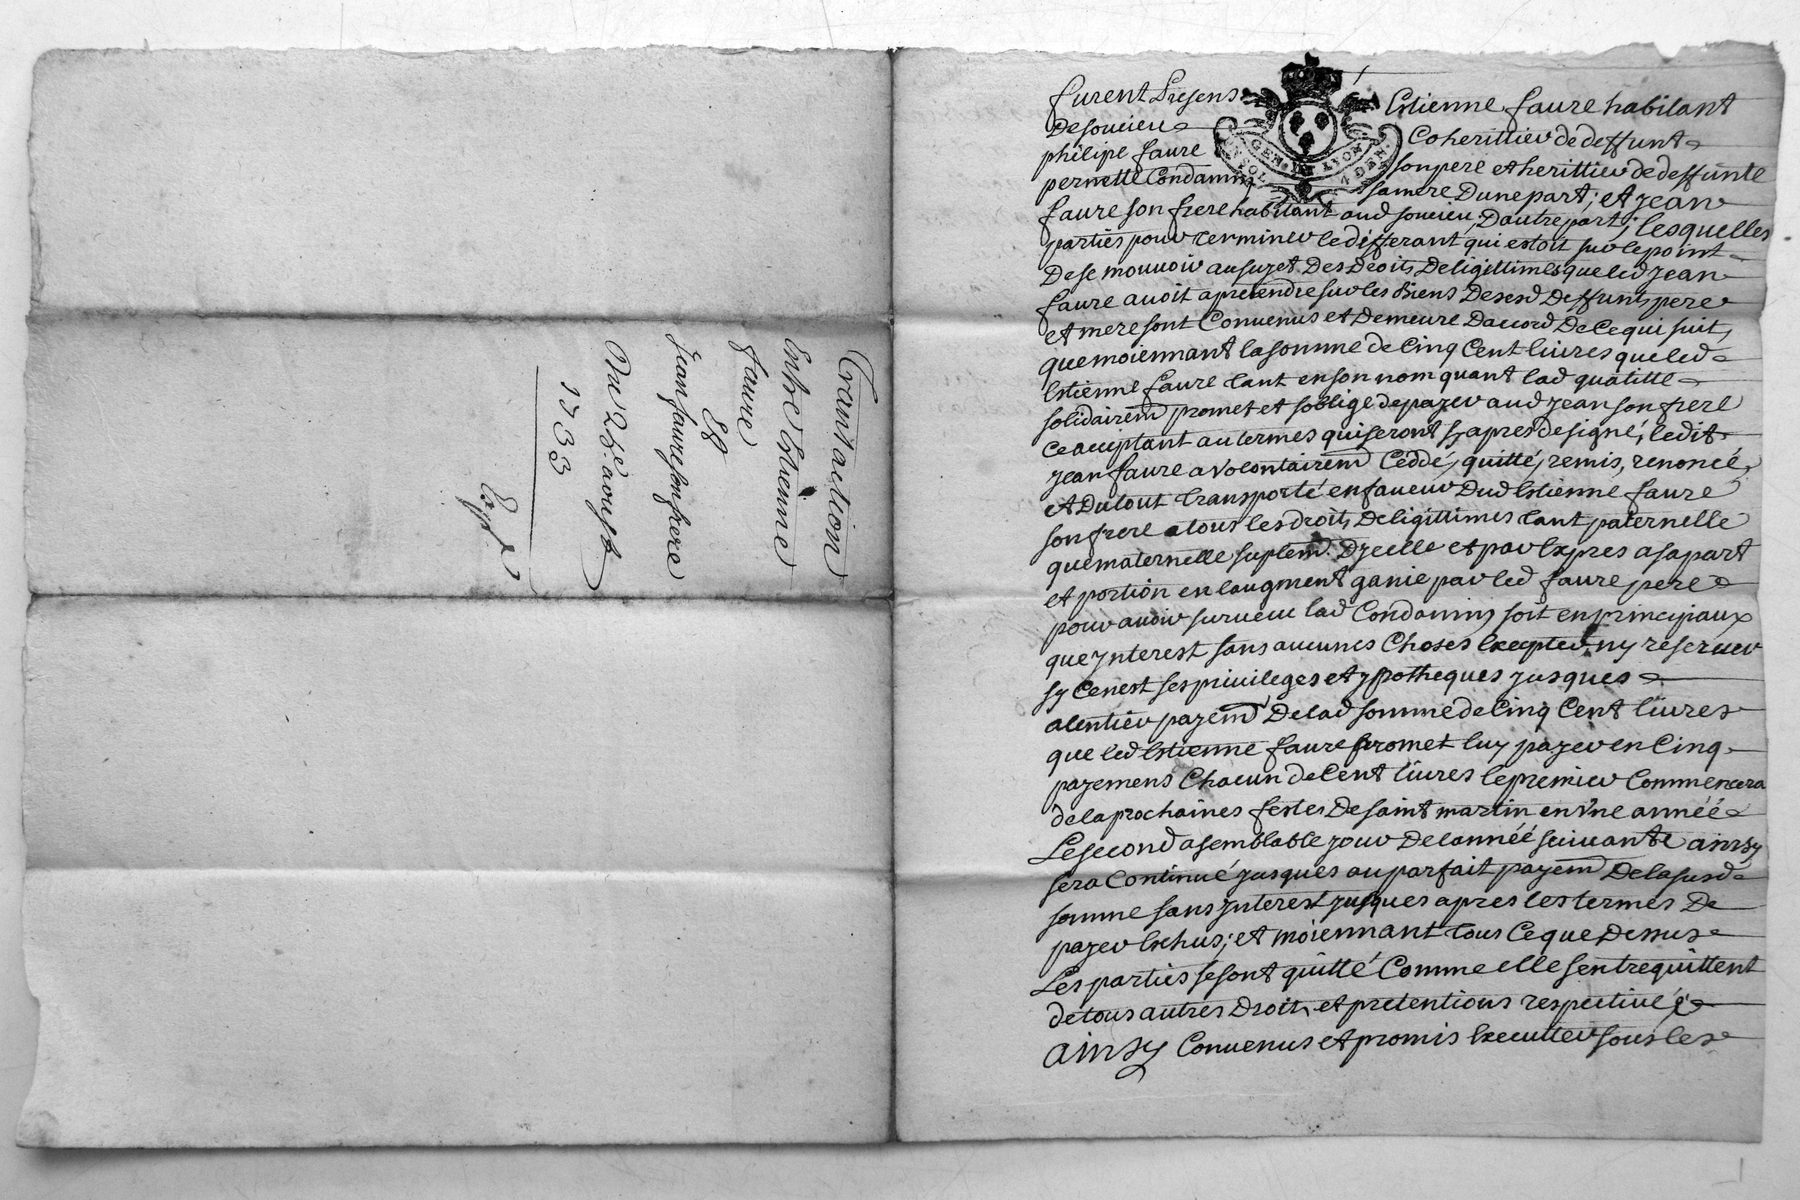 Transaction
Entre Estienne
faure
Et
Jean faure son frere
Du 25e aoust
1733
Exp.
GEN. DE LYON
UN SOL 4 DEN.
furent Presens Estienne faure habitant
De soucieu Coherittier de deffunt
philipe faure son pere et herittier de deffunte
pernette Condamin sa mere Dune part; et Jean
faure son frere habitant aud soucieu, Dautre part; lesquelles
parties pour terminer le differant qui estoit sur le point
De se mouuoir au sujet Des Droits De ligittimes que led Jean
faure auoit a pretendre sur les Biens Desesd Deffunts pere
et mere sont Conuenus et Demeuré Daccord De Ce qui suit,
que moiennant la somme de Cinq Cent liures que led
Estienne faure tant en son nom quant lad qualitté
solidairemt promet et soblige de payer aud Jean son frere
Ce acceptant au termes qui seront Cy apres designé, ledit
Jean faure a volontairemt Ceddé, quitté, remis, renoncé
et Du tout transporté en faueur Dud Estienne faure
son frere a tous les droits De ligittimes tant paternelle
que maternelle suplemt Dycelle et par Expres a sa part
et portion en laugment ganié par led faure pere
pour auoir suruecu lad Condamin soit en principaux
que ynterest sans aucunes Choses Excepter ny reseruer
sy Ce nest ses priuileges et ypotheques jusques
alentier payemt De lad somme de Cinq Cent liures
que led Estienne faure promet luy payer en Cinq
payemens Chacun de Cent liures le premier Commencera
de la prochaines festes De saint martin en vne année
Le second a semblable jour De lannéé suiuante ainsy
sera Continué jusques au parfait payemt De la susd
somme sans ynterest jusques apres les termes De
payer Echus; et moiennant tous Ce que Dessus
Les parties se sont quitté Comme elle sentrequittent
de tous autres Droits et pretentions respectiué
ainsy Conuenus et promis Executter sous les